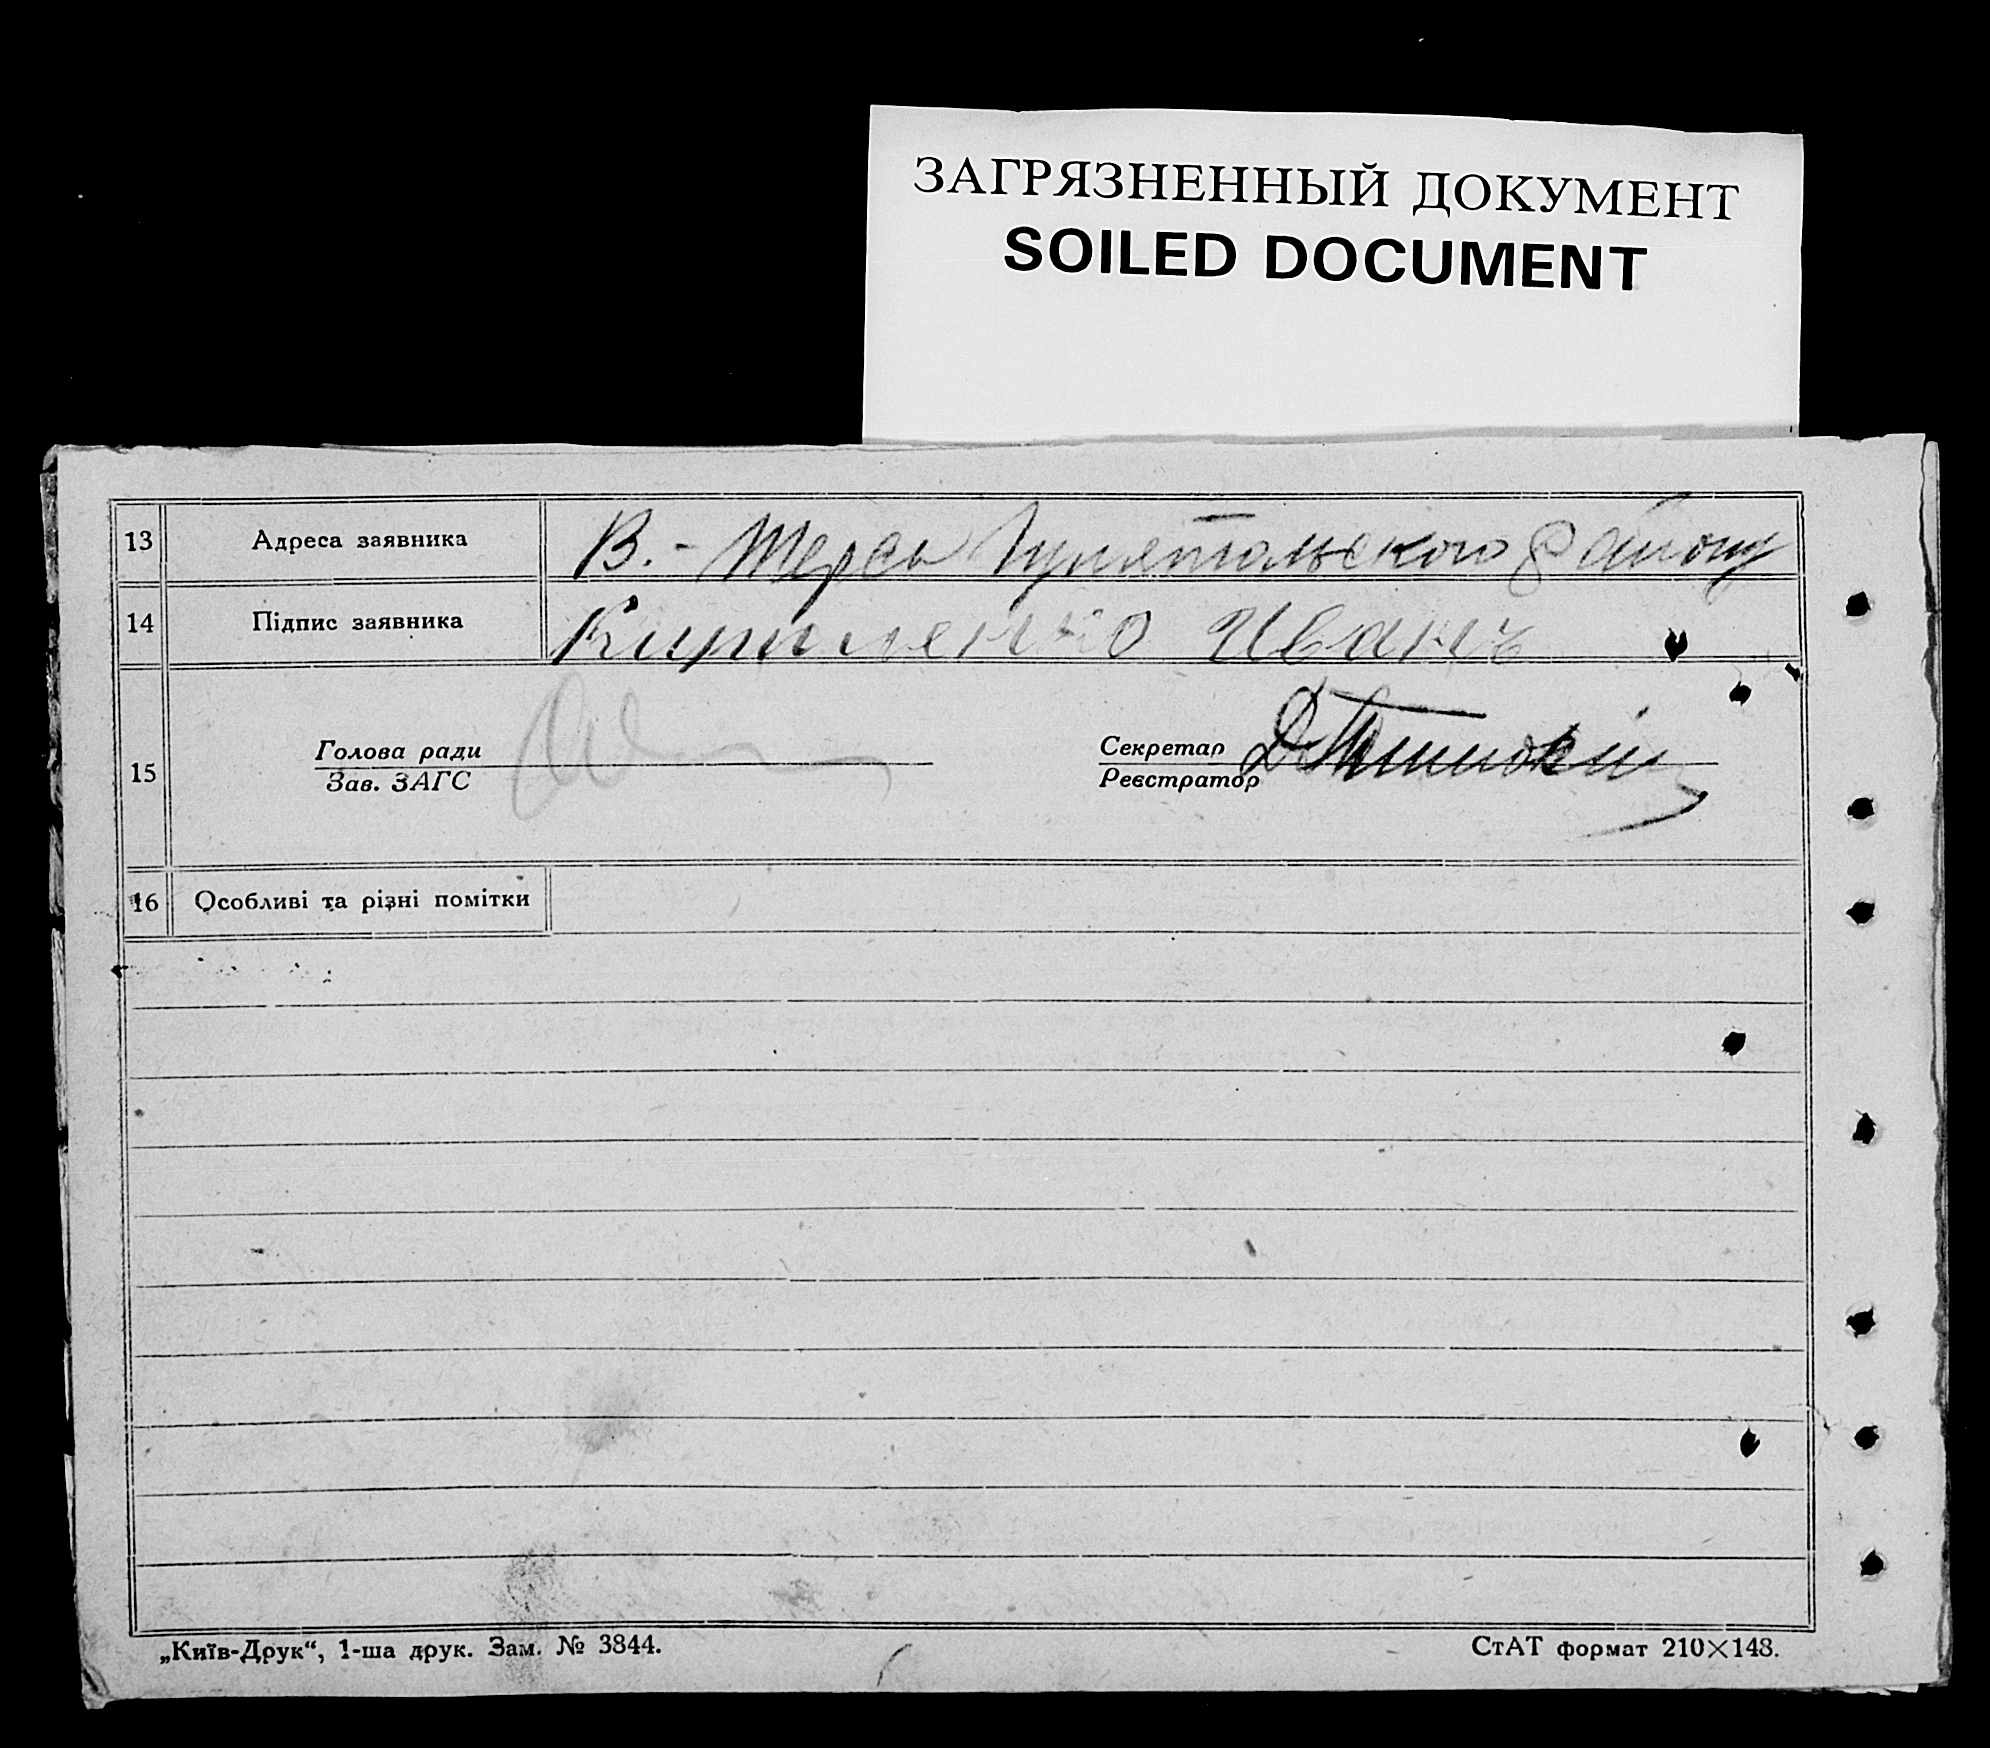 ЗАГРЯЗНЕННЫЙ ДОКУМЕНТ
SOILED DOCUMENT
13 Адреса заявника В.-Терсь Гуляпольского району
14 Підпис заявника Кириленко Иванъ
15 Голова ради
Зав. ЗАГС
Секретар
Реєстратор
16 Особливі та різні помітки
„Київ-Друк“, 1-ша друк. Зам. № 3844.
СтАТ формат 210×148.